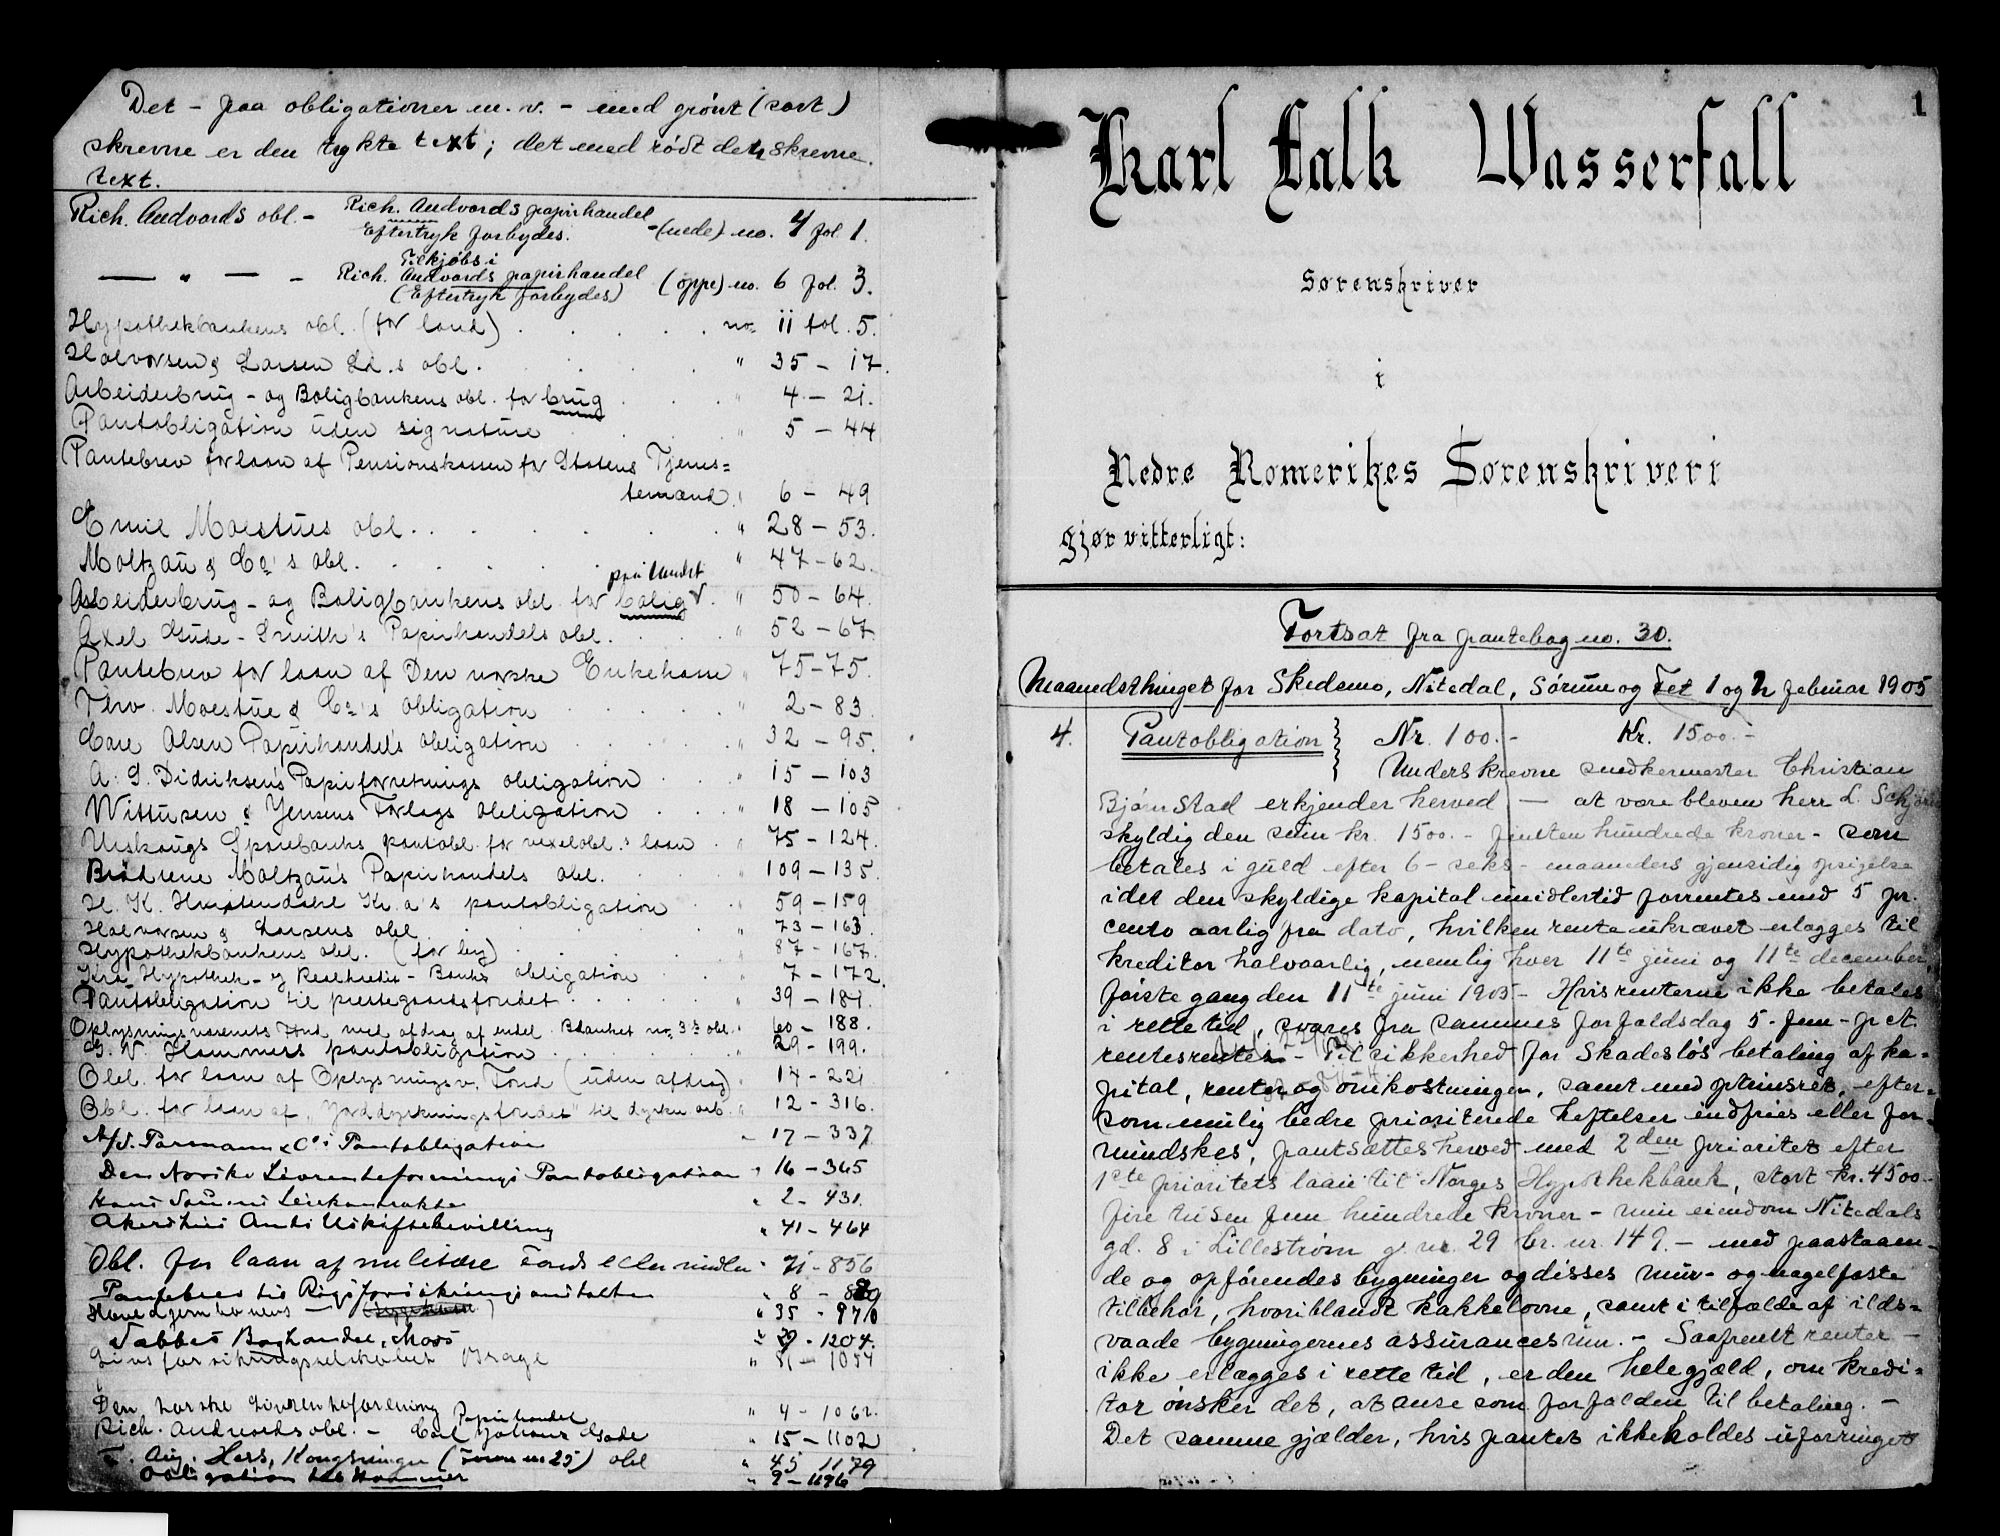 Det - paa obligationer m. v. - med grønt (sort)
skrevne er den trykte text; det med rödt den skrevne
text.
Rich. Andvords obl. - Rich. Andvords papirhandel
Eftertryk forbydes. - (nede) no. 4 fol 1.
— " — - Tilkjøbs i
Rich. Andvords papirhandel (oppe) no. 6 fol. 3.
(Eftertryk forbydes)
Hypothekbankens obl. (for land) no. 11 fol. 5.
Halvorsen & Larsen Ld.s obl. " 35 - 17.
Arbeiderbrug- og Boligbankens obl. for brug " 4 - 21.
Pantobligation uden signature " 5 - 44
Pantebrev for laan af Pensionskassen for Statens Tjenes=
temænd " 6 - 49
Emil Moestues obl. " 28 - 53.
Moltzau & Co's obl. " 47 - 62.
paa landet
Arbeiderbrug- og Boligbankens obl. for bolig " 50 - 64.
Axel Gude-Smith's Papirhandels obl. " 52 - 67.
Pantebrev for laan af Den norske Enkekasse " 75 - 75.
Thv. Moestue & Co's obligation " 2 - 83
Carl Olsen Papirhandels obligation " 32 - 95.
A. G. Didriksen's Papirforretnings obligation " 15 - 103
Wittusen & Jensens Forlags obligation " 18 - 105
Urskougs Sparebanks pantobl. for vexelobl.s laan " 75 - 124.
Brødrene Moltzau's Papirhandels obl. " 109 - 135.
H. K. Kr.a's pantobligation " 59 - 159
Halvorsen & Larsens obl. " 73 - 163.
Hypothekbankens obl. (for by) " 87 - 167.
Kra Hypothek- og Realkredit-Banks obligation " 7 - 172.
Pantobligation til prestegaardsfondet " 39 - 181.
Oplysningsvæsenets Fond med afdrag af endel. Blanket no. 3 obl. " 60 - 188.
G. V. Hammers pantobligation " 29 - 199.
Obl. for laan af Oplysningsv. Fond (uden afdrag) " 14 - 221
Obl. for laan af "Jorddyrkningsfondet" til dyrkn. arb. " 12 - 316.
A/S. Parmann & Co's Pantobligation " 17 - 337
Den Norske Livrenteforenings Pantobligation " 16 - 365
Leiekontrakter " 2 - 431.
Akershus Amts Utskiftebevilling " 41 - 464
Obl. for laan af militære Fonds eller midler " 71 - 856
Pantebrev til Rigsforsikringsanstalten " 8 -
" 35 - 970
Boghandel, Moss " - 1204.
Livsforsikringsselskabet Brage " - 1054
Den norske Livrenteforening " 4 - 1062.
Rich. Andvords obl. - Papirhandel
Carl Johans Gade " 15 - 1102
T. Aug. Hess, Kongsvinger obl " 45 1179
Obligation " 9 - 1196
1
Karl Falk Wasserfall
Sorenskriver
i
Nedre Romerikes Sorenskriveri
gjør vitterligt:
Fortsat fra pantebog no. 30.
Maanedsthinget for Skedsmo, Nitedal, Sørum og Fet 1 og 2 februar 1905
4. Pantobligation Nr. 100.- Kr. 1500.-
Underskrevne snedkermester Christian
Bjørnstad erkjender herved — at være bleven herr L.
skyldig den sum kr. 1500.- femten hundrede kroner - som
betales i guld efter 6 - seks - maaneders gjensidig opsigelse
idet den skyldige kapital imidlertid forrentes med 5 pr.
cento aarlig fra dato, hvilken rente ukrævet erlægges til
kreditor halvaarlig, nemlig hver 11te juni og 11te december,
første gang den 11te juni 1905 - Hvis renterne ikke betales
i rette tid, svares fra sammes forfaldsdag 5 - fem - pct.
rentesrenter. - Til sikkerhed for skadesløs betaling af ka=
pital, renter og omkostninger, samt med optrinsret, efter=
som mulig bedre prioriterede heftelser indfries eller for=
mindskes, pantsættes herved med 2den prioritet efter
1ste prioritets laan til Norges Hypothekbank, stort kr. 4500-
fire tusen fem hundrede kroner - min eiendom Nitedals
gd. 8 i Lillestrøm g. nr. 29 br. nr. 149. - med paastaaen-
de og opførendes bygninger og disses mur- og nagelfaste
tilbehør, hvoriblandt kakkelovne, samt i tilfælde af ilds=
vaade bygningernes assurancesum. - Saafremt renter -
ikke erlægges i rette tid, er den hele gjæld, om kredi=
tor ønsker det, at anse som forfalden til betaling. -
Det samme gjælder, hvis pantet ikke holdes uforringet